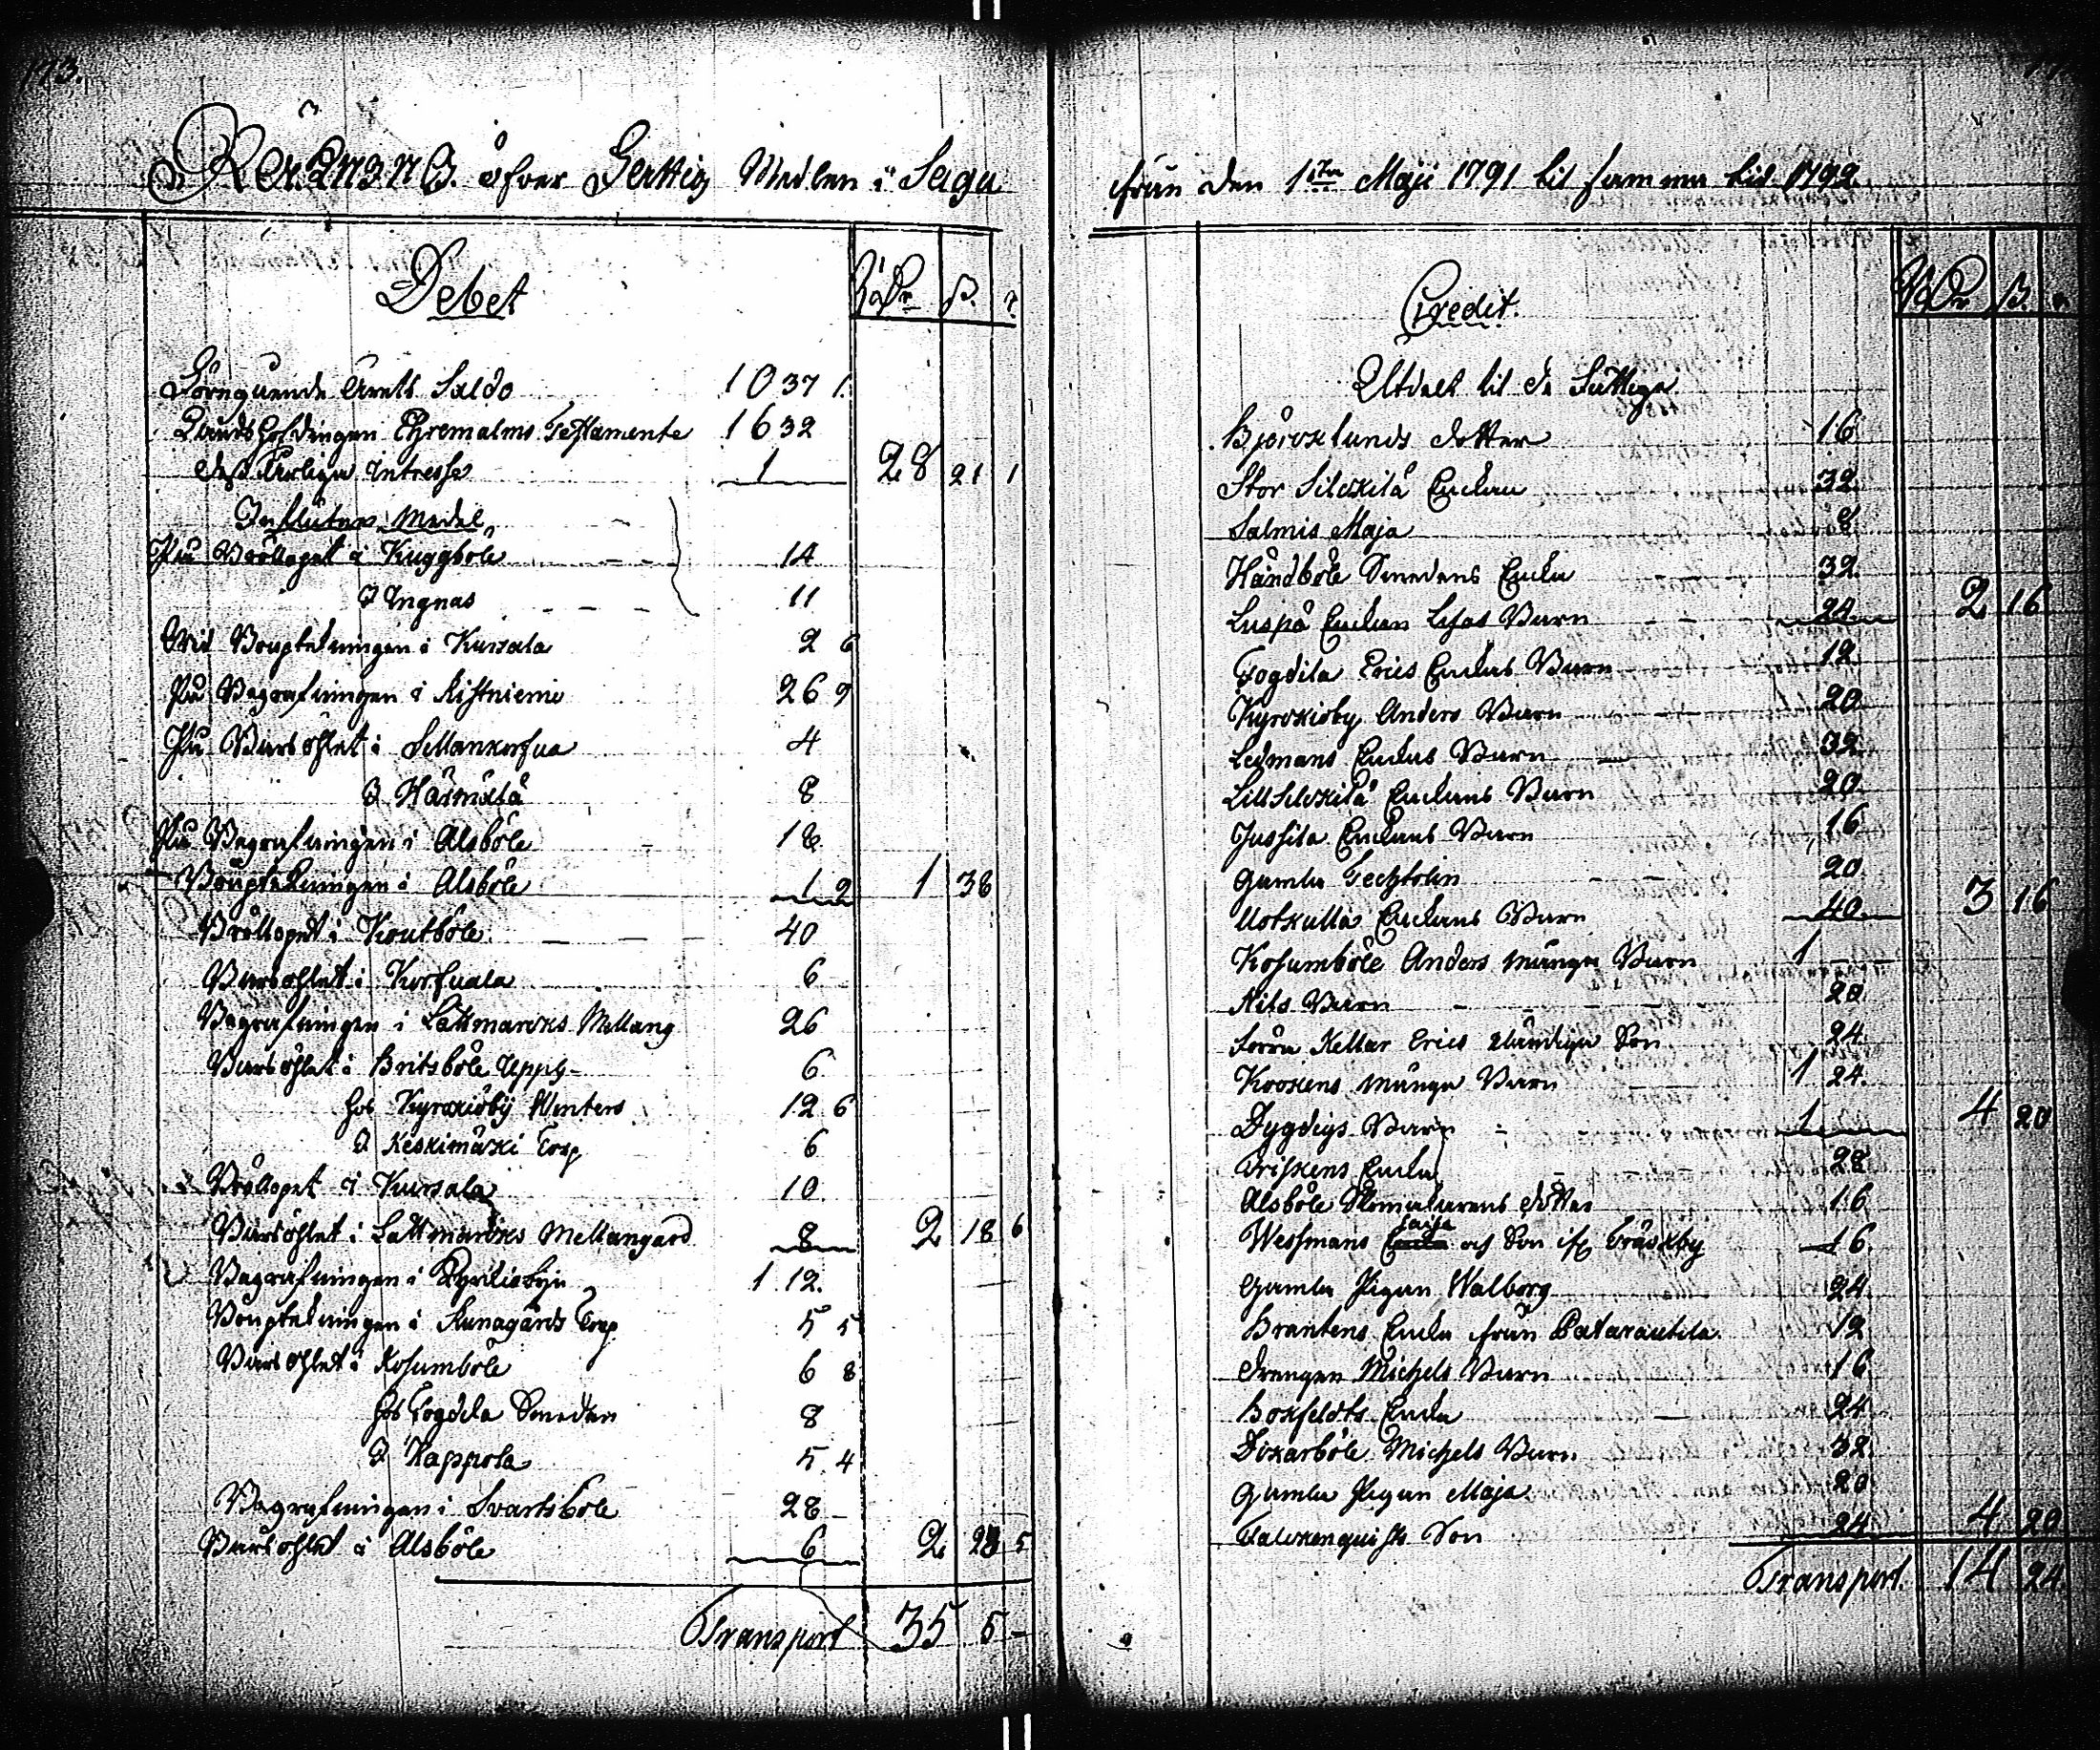 173.
Räkning öfver Fattig Medlen i Sagu
Debet
RDr ß. r.
Föregående Årets Saldo 10 37 1.
Landshöfdingen Ehremalms Testamente 16 32
Dess Årliga Intresse 1 28 21 1
Influtne Medel
På Bröllopet i Kuggböle 14
I Ingnas 11
Vid Bouptekningen i Kurrala 2 6
På Begrafningen i Ristniemi 26 9
På Barnsöhlet i Sellankorfua 4
I Härmälä 8
På Begrafningen i Alsböle 18
Bouptekningen i Alsböle 1 2 1 38
Bröllopet i Knutböle 40
Barnsöhlet i Korfuala 6
Begrafningen i Lättmarcks Mellang 26
Barnsöhlet i Britsböle Uppg 6
hos Kyrckioby Winters 12 6
I Keskimäcki Torp 6
Bröllopet i Kurrala 10
Barnsöhlet i Lättmarcks Mellangård 8 2 18 6
Begrafningen i 1 12.
Bouptekningen i Runagårds Torp 5 5
Barnsöhlet i Kosumböle 6 8
hos Fogdila Smeden 8
I Kappola 5 4
Begrafningen i Svartsböle 28
Barnsöhlet i Alsböle 6 2 23 5
Transport 35 5 -
från den 1sta Maji 1791 til samma tid 1792
Credit.
RDr ß. r.
Utdelt til de Fattige
Björcklunds dotter 16
Stor Silckilä Enckan 32
Salmis Maja 8
Håndböle Smedens Encka 32
Luspå Enckan Lisas Barn 24 2 16
Fogdila Erics Enckas Barn 12
Kyrckioby Anders Barn 20
Ledmans Enckas Barn 32
Lill Silckilä Enckans Barn 20
Jussila Enckans Barn 16
Gamla Techtolin 20
Uotskulla Enckans Barn 40 3 16
Kosumböle Anders många Barn 1
Nils Barn 20
Söörn Kellar Erics eländiga Son 24
Krookens många Barn 1 24
Dygdigs Barn 1 4 20
Friskens Encka 28
Alsböle Skomakarens dotter 16
Wessmans Caisa och Son if Träskby 16.
Gamla Pigan Walborg 24
Brantens Encka från Patarautila 12
Drengen Michels Barn 16
Boxfeldts Encka 24
Dickarböle Michels Barn 32
Gamla Pigan Maja 20
Falckenquists Son 24 4 20
Transport. 14 24.